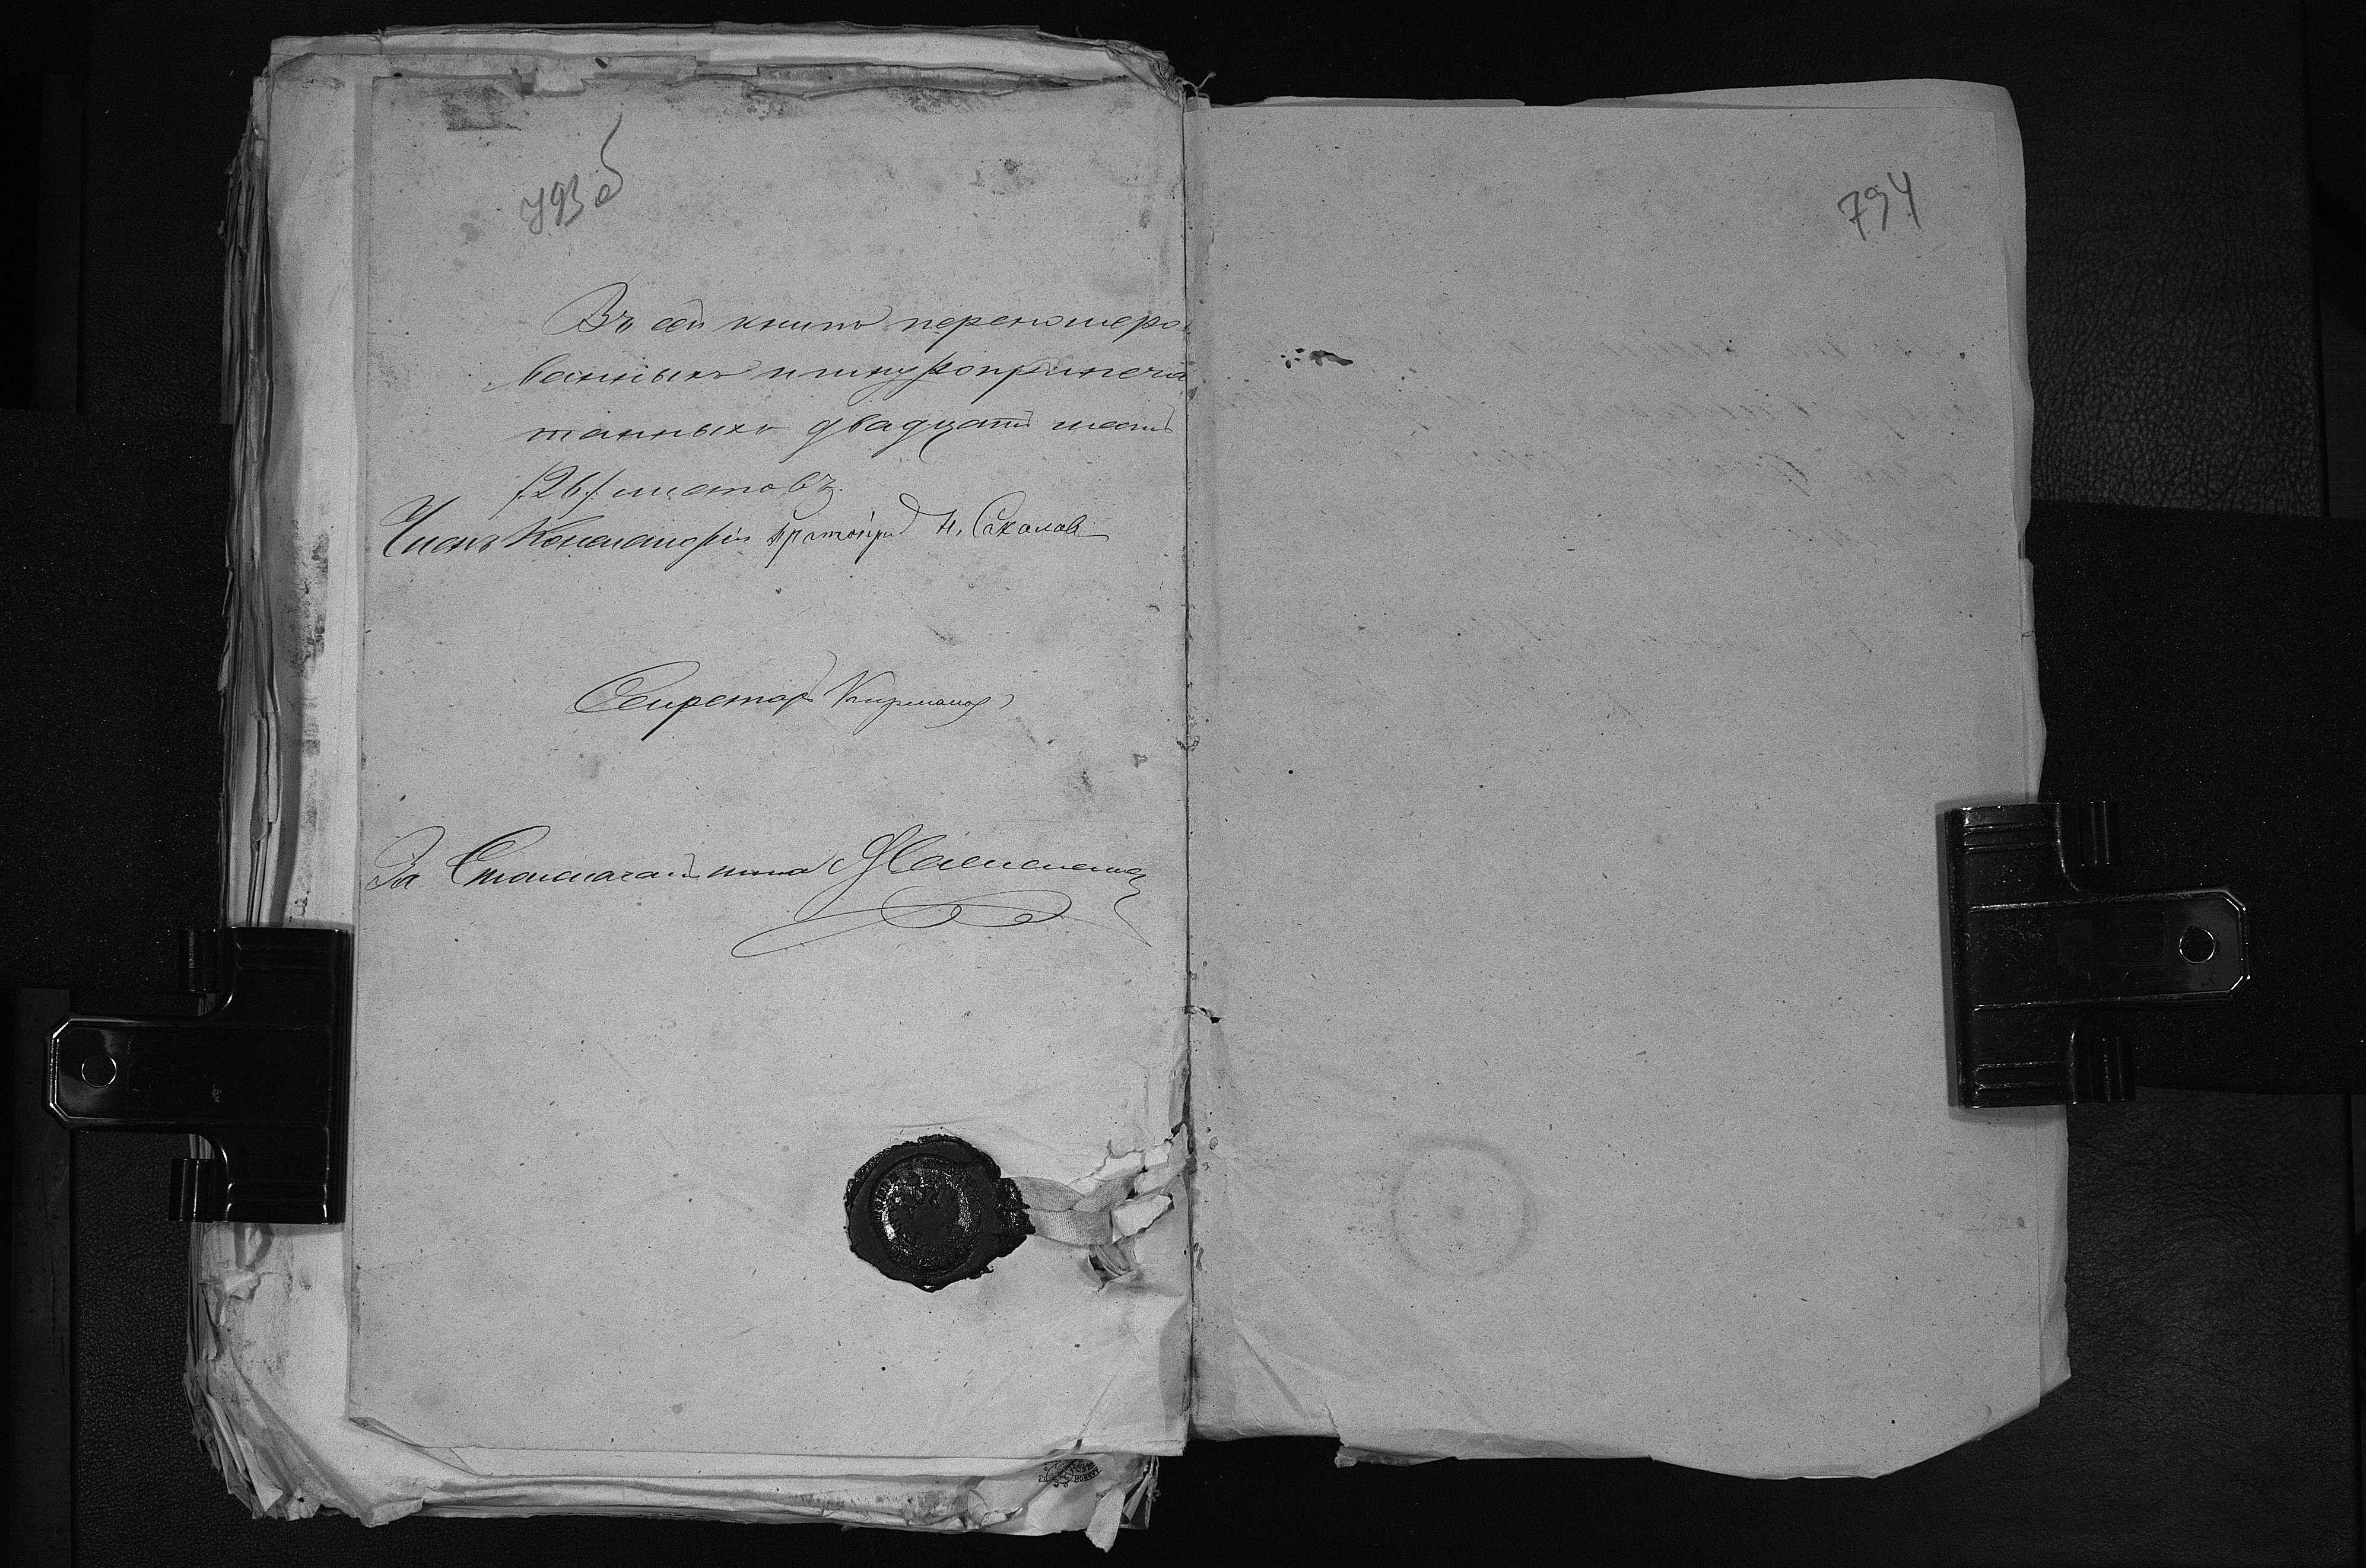 793 б
794
Въ сей книгѣ перенумеро-
ванныхъ шнуроприпеча
танныхъ двадцать шесть
/26/ листовъ.
Членъ Консисторіи Протоіерей Н. Соколовъ
Секретарь
За Столоначальника